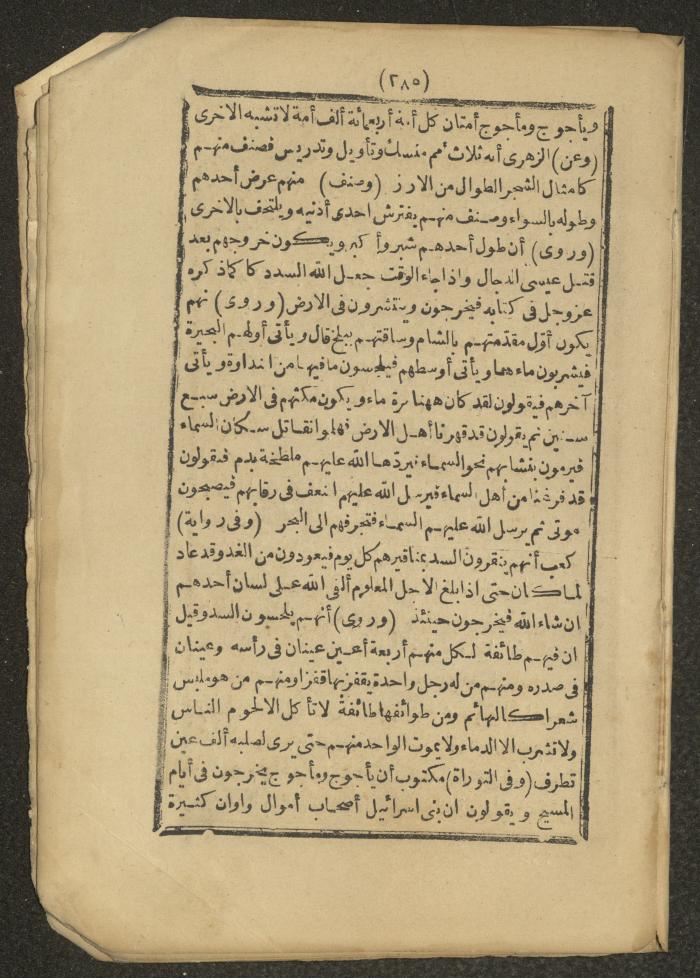 (٢٨٥)
ويأجوج ومأجوج أمتان كل أمة أربعمائة ألف أمة لا تشبه الاخرى
(وعن) الزهرى أنه ثلاث أمم منسك وتأويل وتدريس فصنف منهم
كامثال الشجر الطوال من الارز (وصنف) منهم عرض أحدهم
وطوله بالسواء وصنف منهم يفترش احدى أذنيه ويلتحف بالاخرى
(وروى) أن طول أحدهم شبر وأكبر ويكون خروجهم بعد
قتل عيسى الدجال واذا جاء الوقت جعل الله السد دكا كما ذكره
عز وجل فى كتابه فيخرجون وينتشرون فى الارض (وروى) نهم
يكون أول مقدمتهم بالشام وساقتهم ببلخ قال ويأتى أولهم البحيرة
فيشربون ماءهما ويأتى أوسطهم فيلحسون ما فيها من النداوة ويأتى
آخرهم فيقولون لقد كان ههنا مرة ماء ويكون مكثهم فى الارض سبع
سنين ثم يقولون قد قهرنا أهل الارض فهلموا نقاتل سكان السماء
فيرمون بنشابهم نحو السماء فيردها الله عليهم ملطخة بدم فيقولون
قد فرغنا من أهل السماء فيرسل الله عليهم النغف فى رقابهم فيصبحون
موتى ثم يرسل الله عليهم السماء فتجرفهم الى البحر (وفى رواية)
كعب أنهم ينقرون السد بمناقيرهم كل يوم فيعودون من الغد وقد عاد
لما كان حتى اذا بلغ الاجل المعلوم ألقى الله على لسان أحدهم
ان شاء الله فيخرجون حينئذ (وروى) أنهم يلحسون السد وقيل
ان فيهم طائفة لكل منهم أربعة أعين عينان فى رأسه وعينان
فى صدره ومنهم من له رجل واحدة يقفز بها قفزا ومنهم من هو ملبس
شعرا كالبهائم ومن طوائفها طائفة لا تأكل الا لحوم الناس
ولا تشرب الا الدماء ولا يموت الواحد منهم حتى يرى لصلبه ألف عين
تطرف (وفى التوراة) مكتوب أن يأجوج ومأجوج يخرجون فى أيام
المسيح ويقولون ان بنى اسرائيل أصحاب أموال وأوان كثيرة